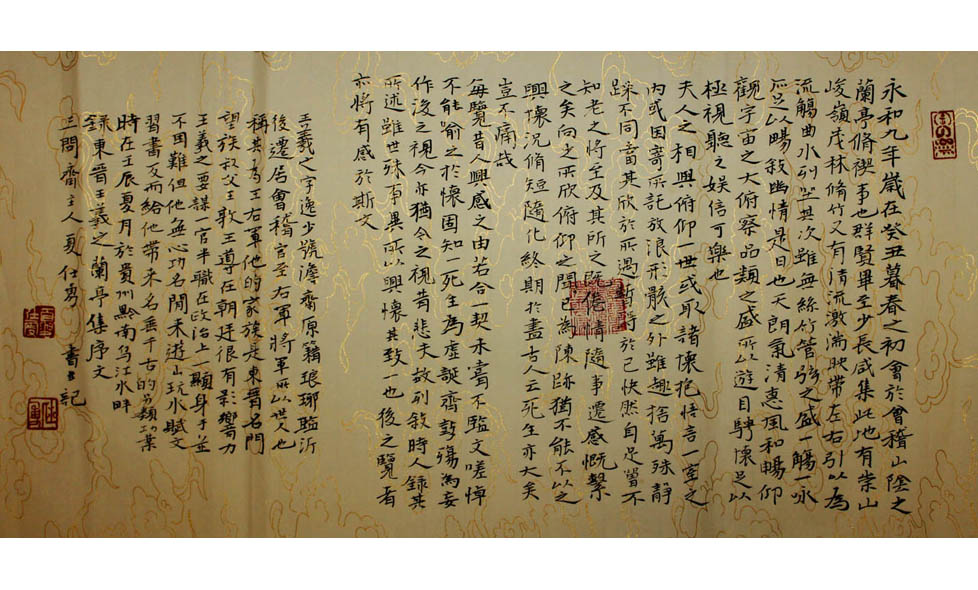 永和九年歲在癸丑暮春之初會於會稽山陰之
蘭亭脩禊事也群賢畢至少長咸集此地有崇山
峻嶺茂林脩竹又有清流激湍映帶左右引以為
流觴曲水列坐其次雖無絲竹管弦之盛一觴一詠
足以暢敘幽情是日也天朗氣清惠風和暢仰
觀宇宙之大俯察品類之盛所以遊目騁懷足以
極視聽之娛信可樂也
夫人之相與俯仰一世或取諸懷抱悟言一室之
內或因寄所託放浪形骸之外雖趣捨萬殊靜
躁不同當其欣於所遇暫得於己快然自足曾不
知老之將至及其所之既倦情隨事遷感慨繫
之矣向之所欣俯仰之間已為陳跡猶不能不以之
興懷況脩短隨化終期於盡古人云死生亦大矣
豈不痛哉
每覽昔人興感之由若合一契未嘗不臨文嗟悼
不能喻之於懷固知一死生為虛誕齊彭殤為妄
作後之視今亦猶今之視昔悲夫故列敘時人錄其
所述雖世殊事異所以興懷其致一也後之覽者
亦將有感於斯文
王羲之字逸少號澹齋原籍琅琊臨沂
後遷居會稽官至右軍將軍所以世人也
稱其為王右軍他的家族是東晉名門
望族叔父王敦王導在朝廷很有影響力
王羲之要謀一官半職在政治上一顯身手並
不困難但他無心功名閒來遊山玩水賦文
習書反而給他帶來名垂千古的另類功業
時在壬辰夏月於貴州黔南烏江水畔
錄東晉王羲之蘭亭集序文
三閒齋主人夏仕勇書記